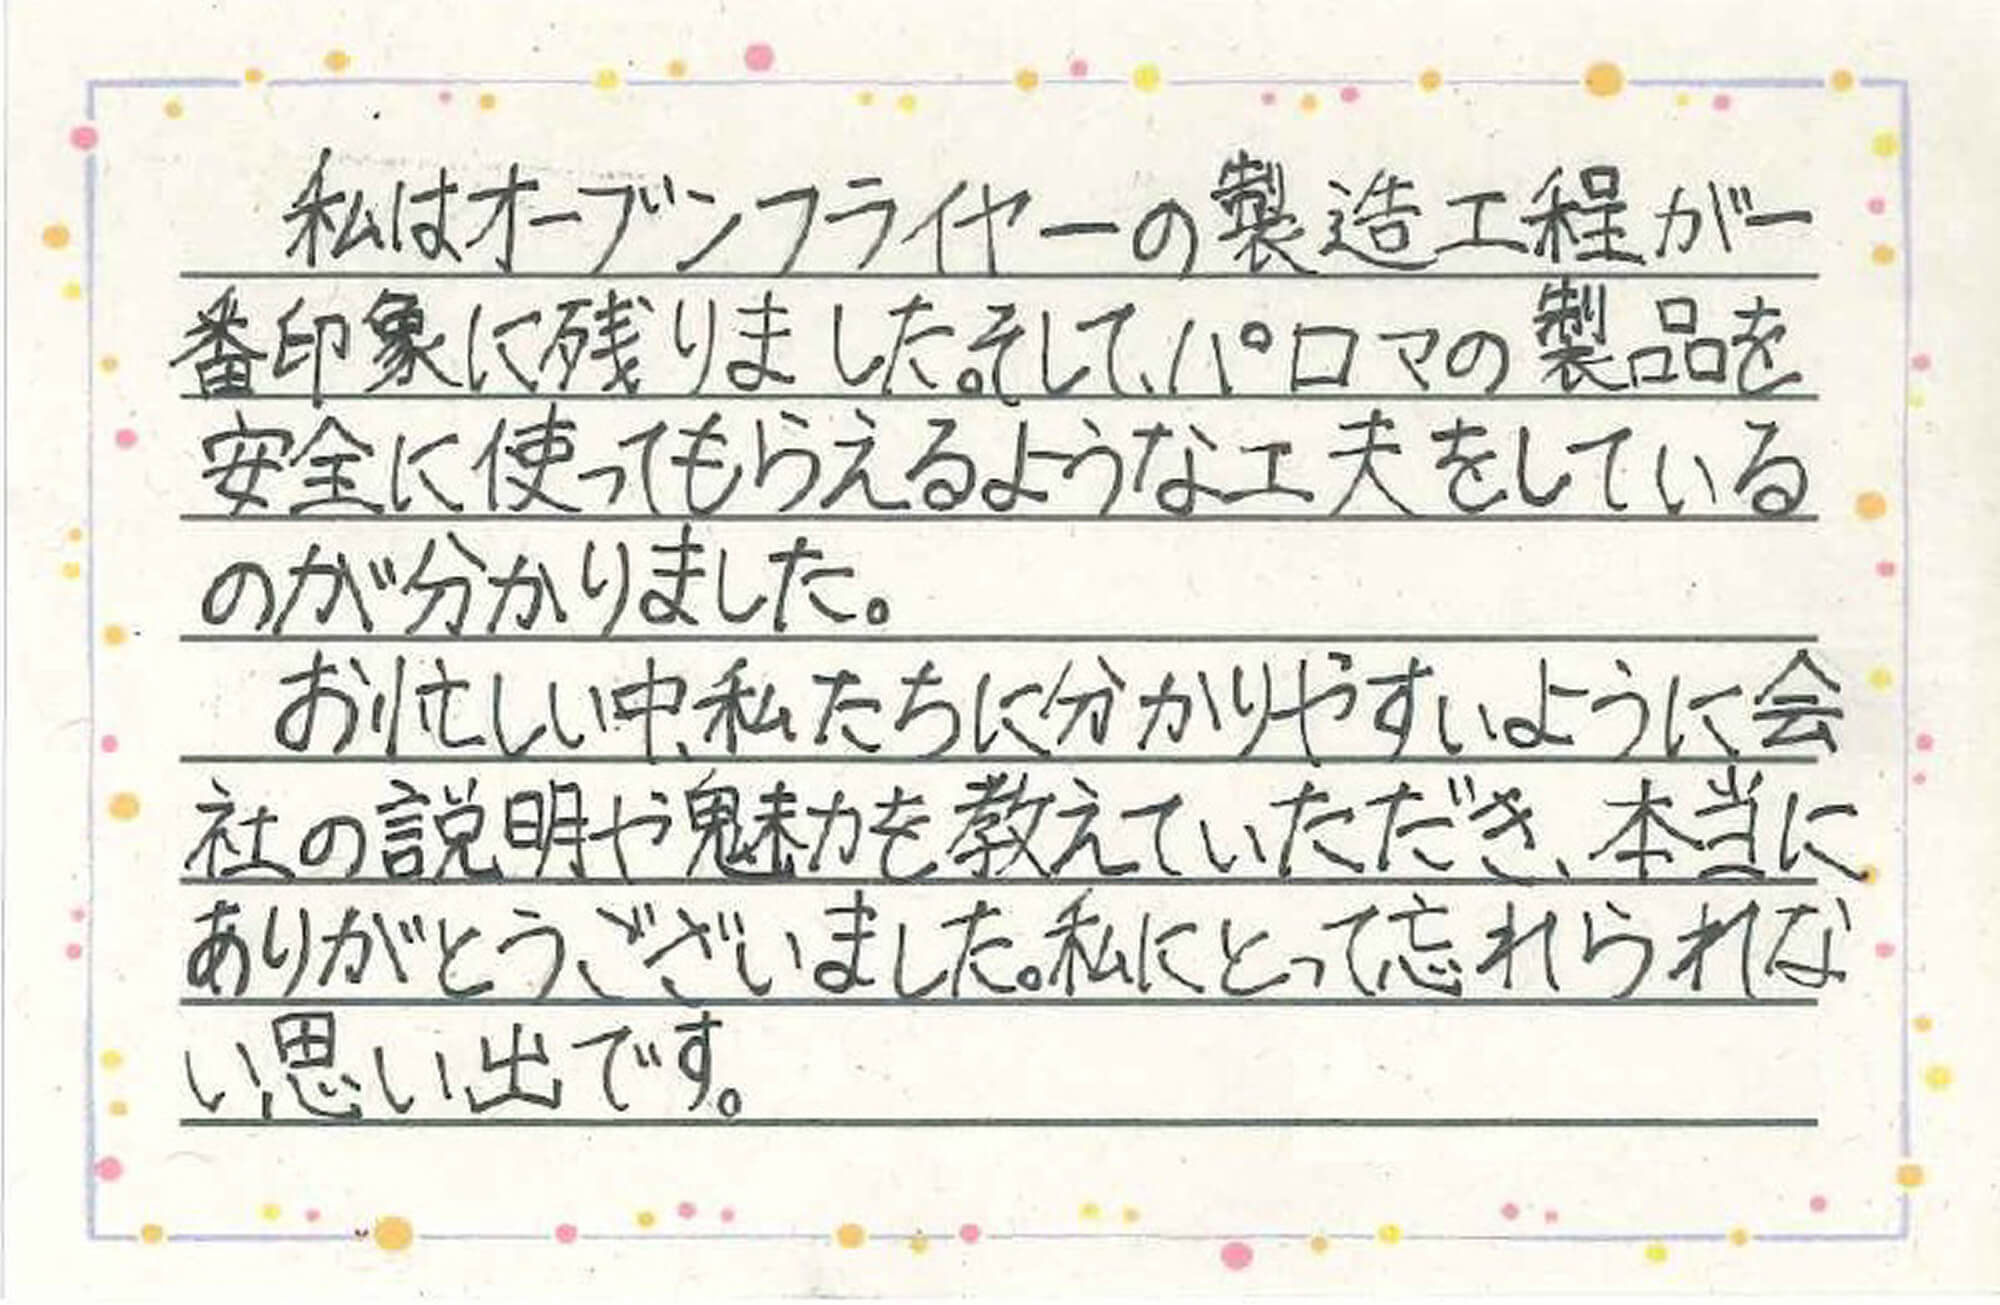 私はオーブンフライヤーの製造工程が一
番印象に残りました。そして、パロマの製品を
安全に使ってもらえるような工夫をしている
のが分かりました。
お忙しい中、私たちに分かりやすいように会
社の説明や魅力を教えていただき、本当に
ありがとうございました。私にとって忘れられな
い思い出です。